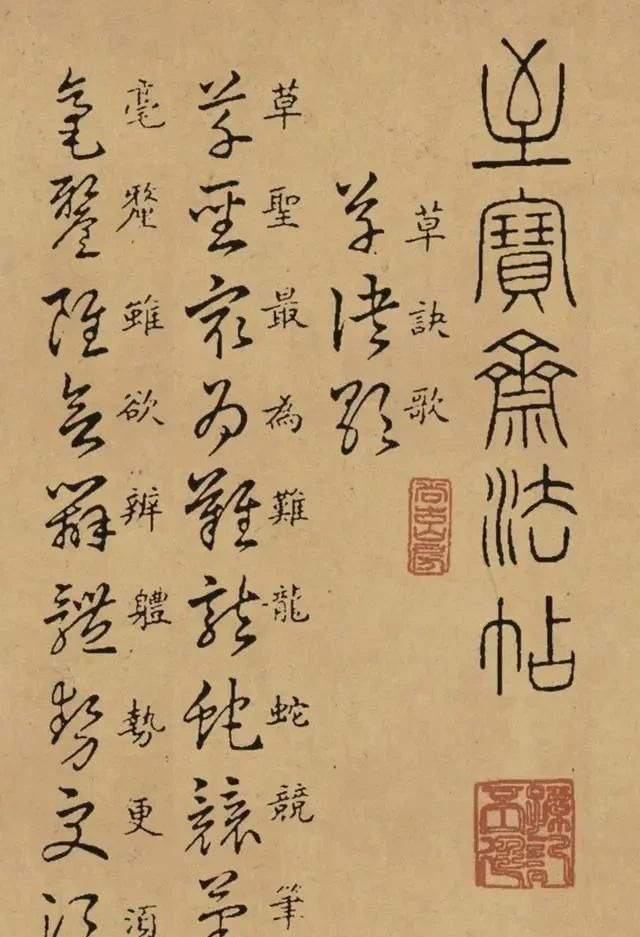 至寶齋法帖
草訣歌
草訣歌
草聖最為難龍蛇競筆
草聖最為難龍蛇競筆
毫釐雖欲辨體勢更須
毫釐雖欲辨體勢更須